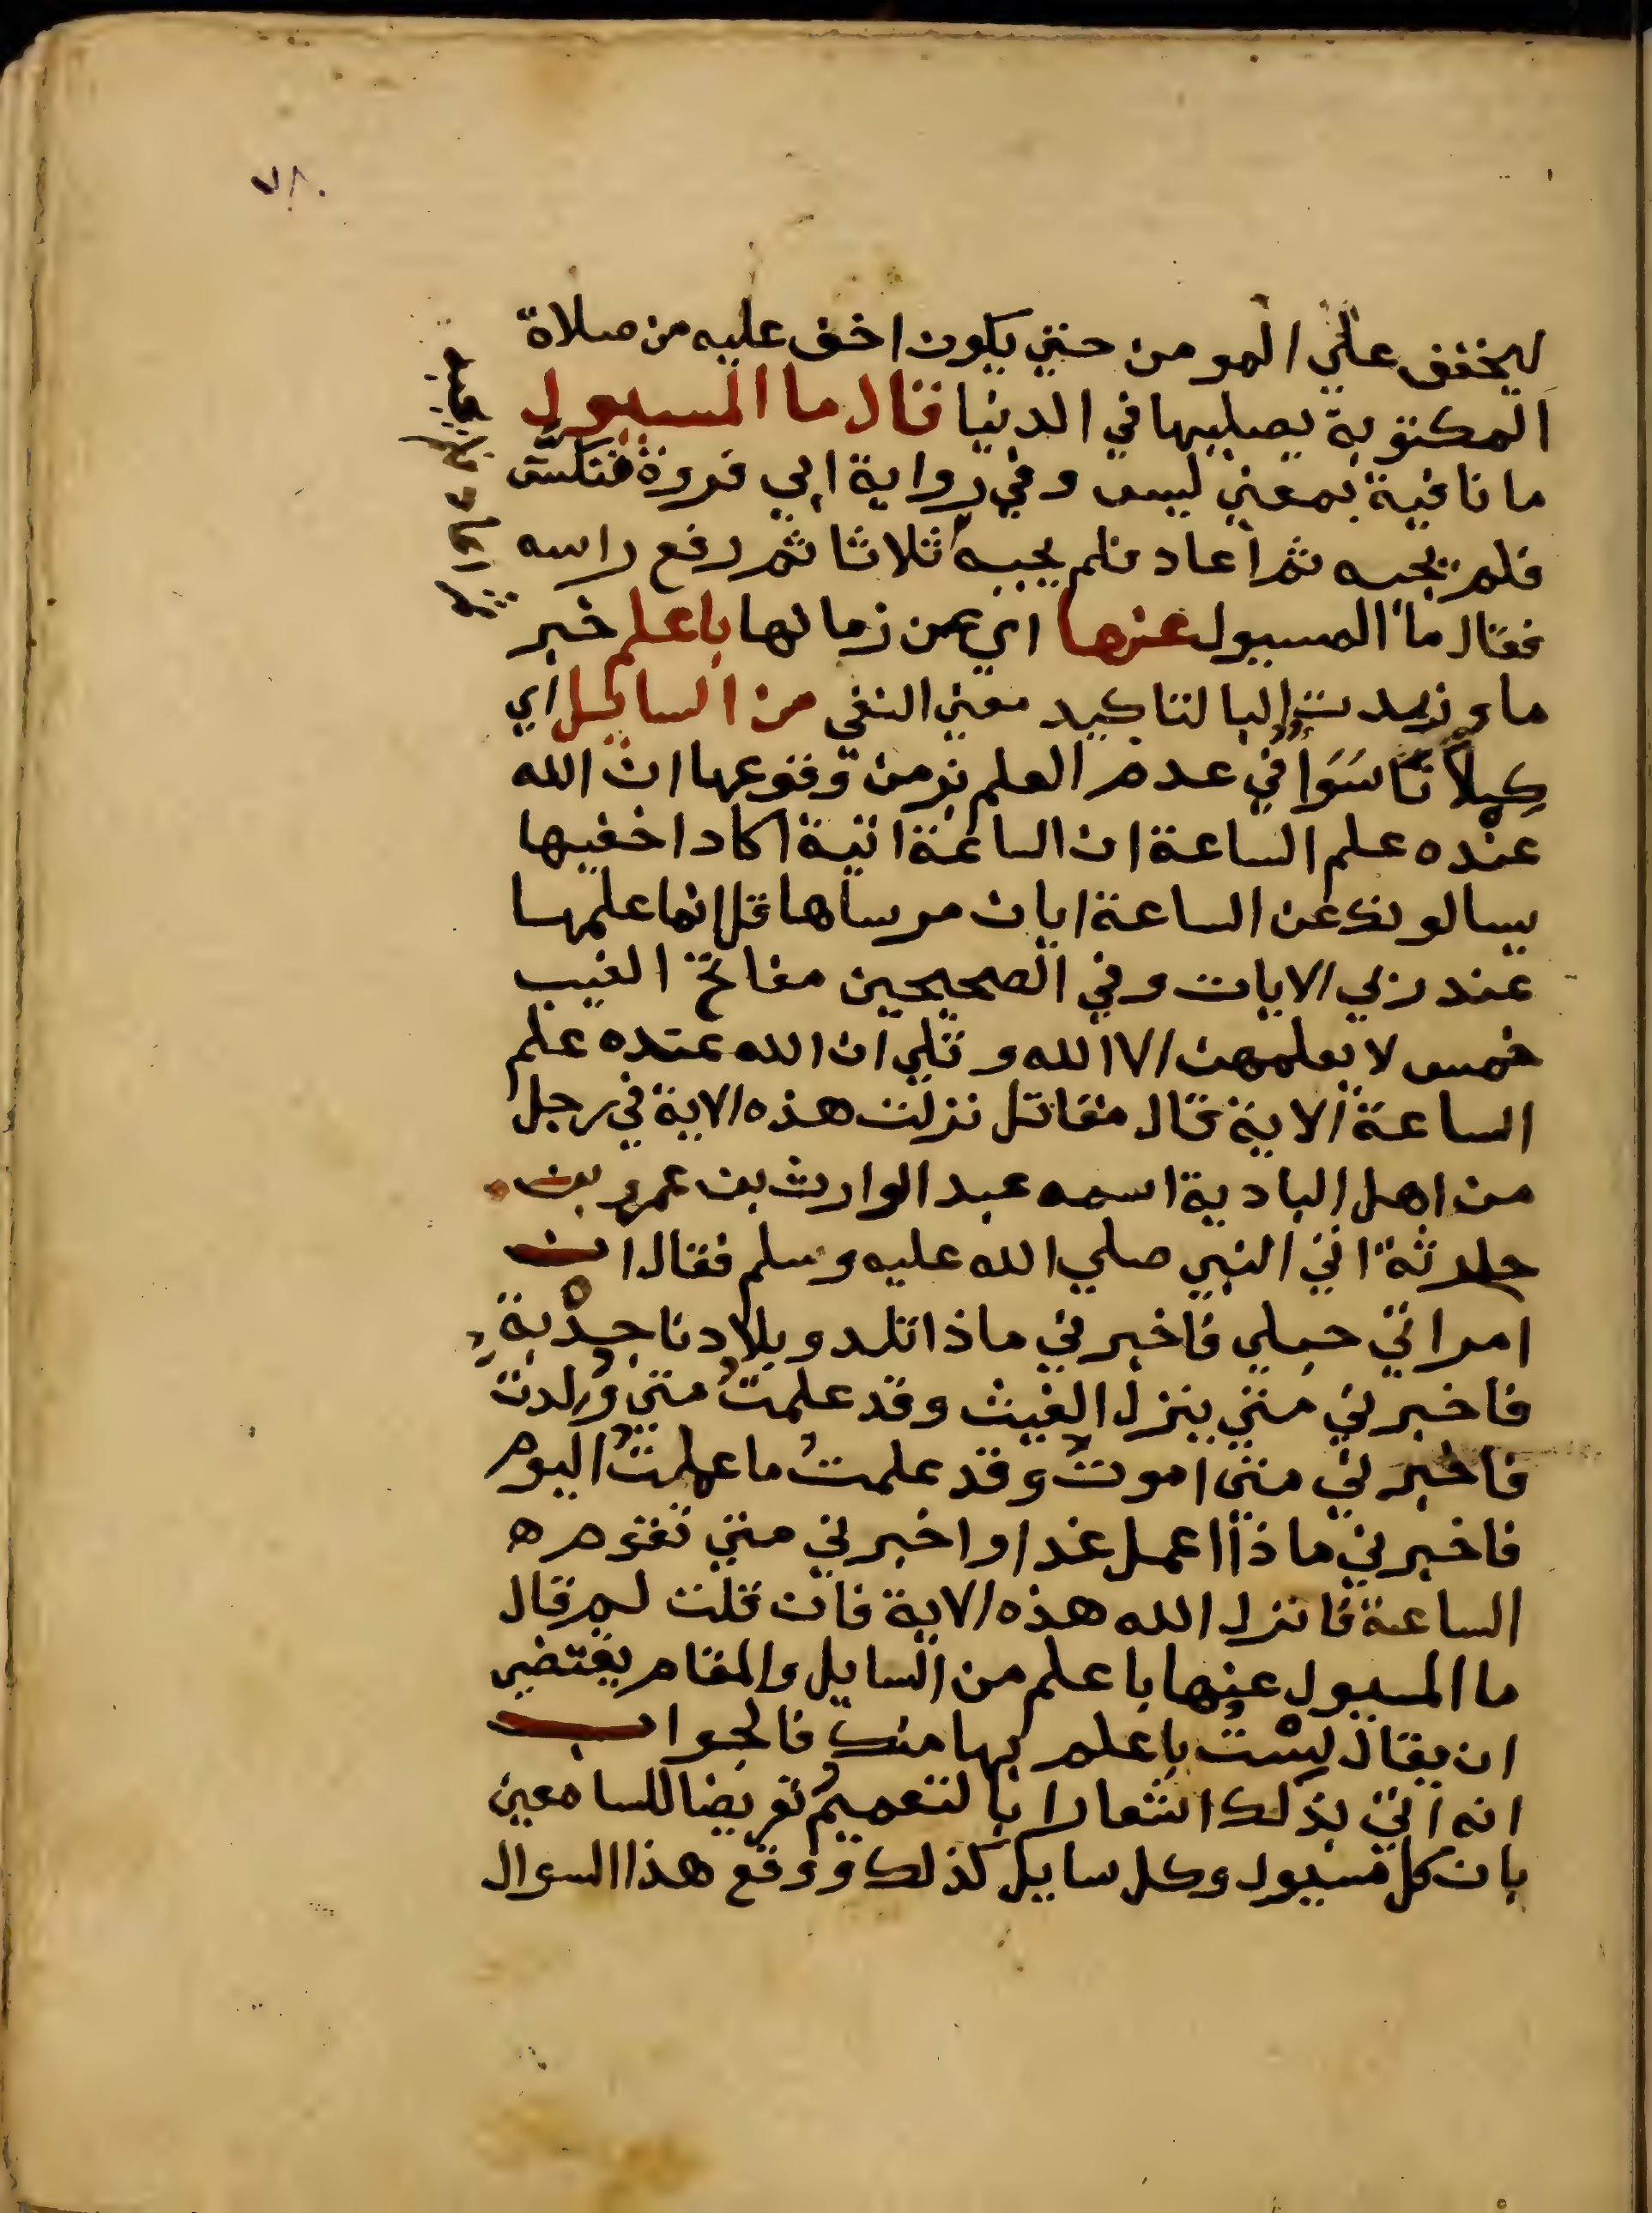 ليخفف علي المومن حتي يكون اخف عليه من صلاة
المكتوبة يصليها في الدنيا قال ما المسيول
ما نافية بمعني ليس وفي رواية ابي فروة فنكس
فلم يجبه ثم اعاد فلم يجبه ثلاثا ثم رفع راسه
فقال ما المسيول عنها اي عن زمانها باعلم خبر
ما وزيدت البا لتاكيد معني النفي من السايل اي
كلانا سَوَا في عدم العلم بزمن وقوعها ان الله
عنده علم الساعة ان الساعة اتية اكاد اخفيها
يسالونك عن الساعة ايان مرساها قل انما علمها
عند ربي الايات وفي الصحيحين مفاتح الغيب
خمس لا يعلمهن الا الله وتلي ان الله عنده علم
الساعة الاية قال مقاتل نزلت هذه الاية في رجل
من اهل البادية اسمه عبد الوارث بن عمرو بن
حارثة اتي النبي صلي الله عليه وسلم فقال ان
امراتي حبلي فاخبرني ماذا تلد وبلادنا جدْبة
فاخبرني متي ينزل الغيث وقد علمتُ متي وُلدت
فاخبرني متي اموتُ وقد علمتُ ما عملتُ اليوم
فاخبرني ماذا اعمل غدا واخبرني متي تقوم ه
الساعة فانزل الله هذه الاية فان قلت لم قال
ما المسيول عنها باعلم من السايل والمقام يقتضي
ان يقال لسْتُ باعلم بها منك فالجواب
انه اتي بذلك اشعارا بالتعميم تعريضا للسامعين
بان كل مسيول وكل سايل كذلك ووقع هذا السوال